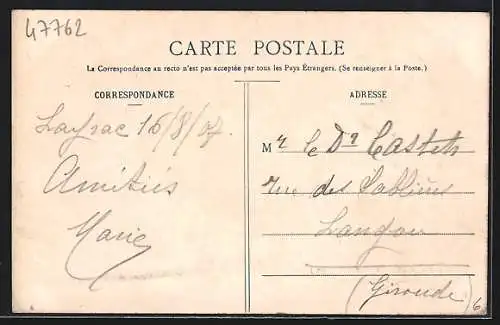 47762
CARTE POSTALE
La Correspondance au recto n'est pas acceptée par tous les Pays Étrangers. (Se renseigner à la Poste.)
CORRESPONDANCE
Layrac 16/8/07
Amitiés
Marie
ADRESSE
Mr le Dr Castets
rue des Sablières
Langon
(Gironde)
6